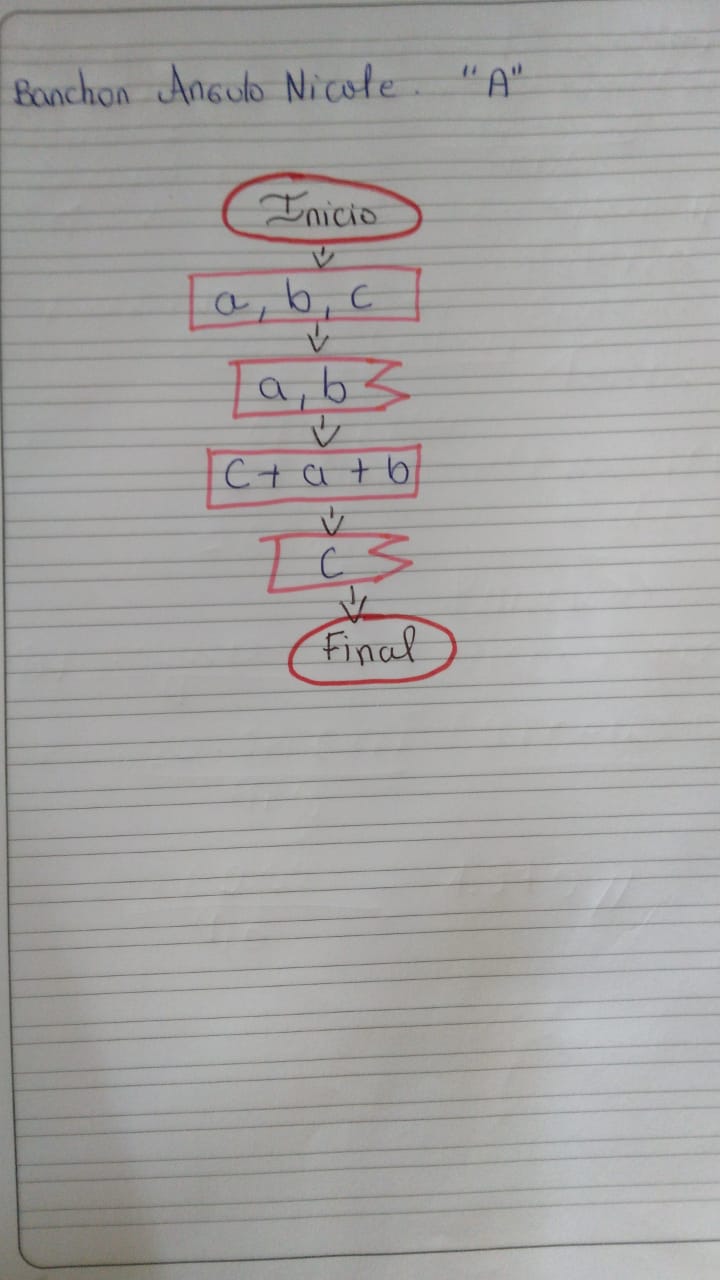 Banchon Angulo Nicole. "A"
Inicio
a, b, c
a, b
C + a + b
C
Final